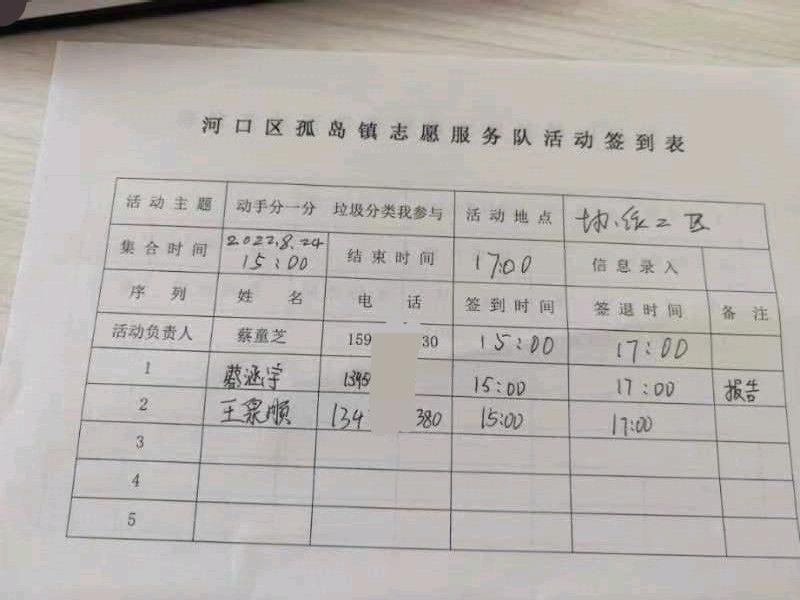 河口区孤岛镇志愿服务队活动签到表
活动主题 动手分一分 垃圾分类我参与 活动地点 二区
集合时间 2022.8.24 15:00 结束时间 17:00 信息录入
序列 姓名 电话 签到时间 签退时间 备注
活动负责人 蔡童芝 159 30 15:00 17:00
1 蔡涵宇 1395 15:00 17:00 报告
2 王泉顺 134 380 15:00 17:00
3
4
5